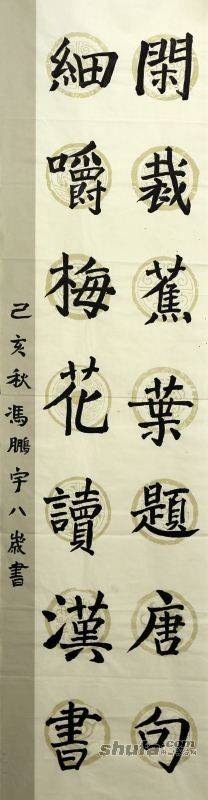 閑裁蕉葉題唐句
細嚼梅花讀漢書
己亥秋馮鵬宇八歲書